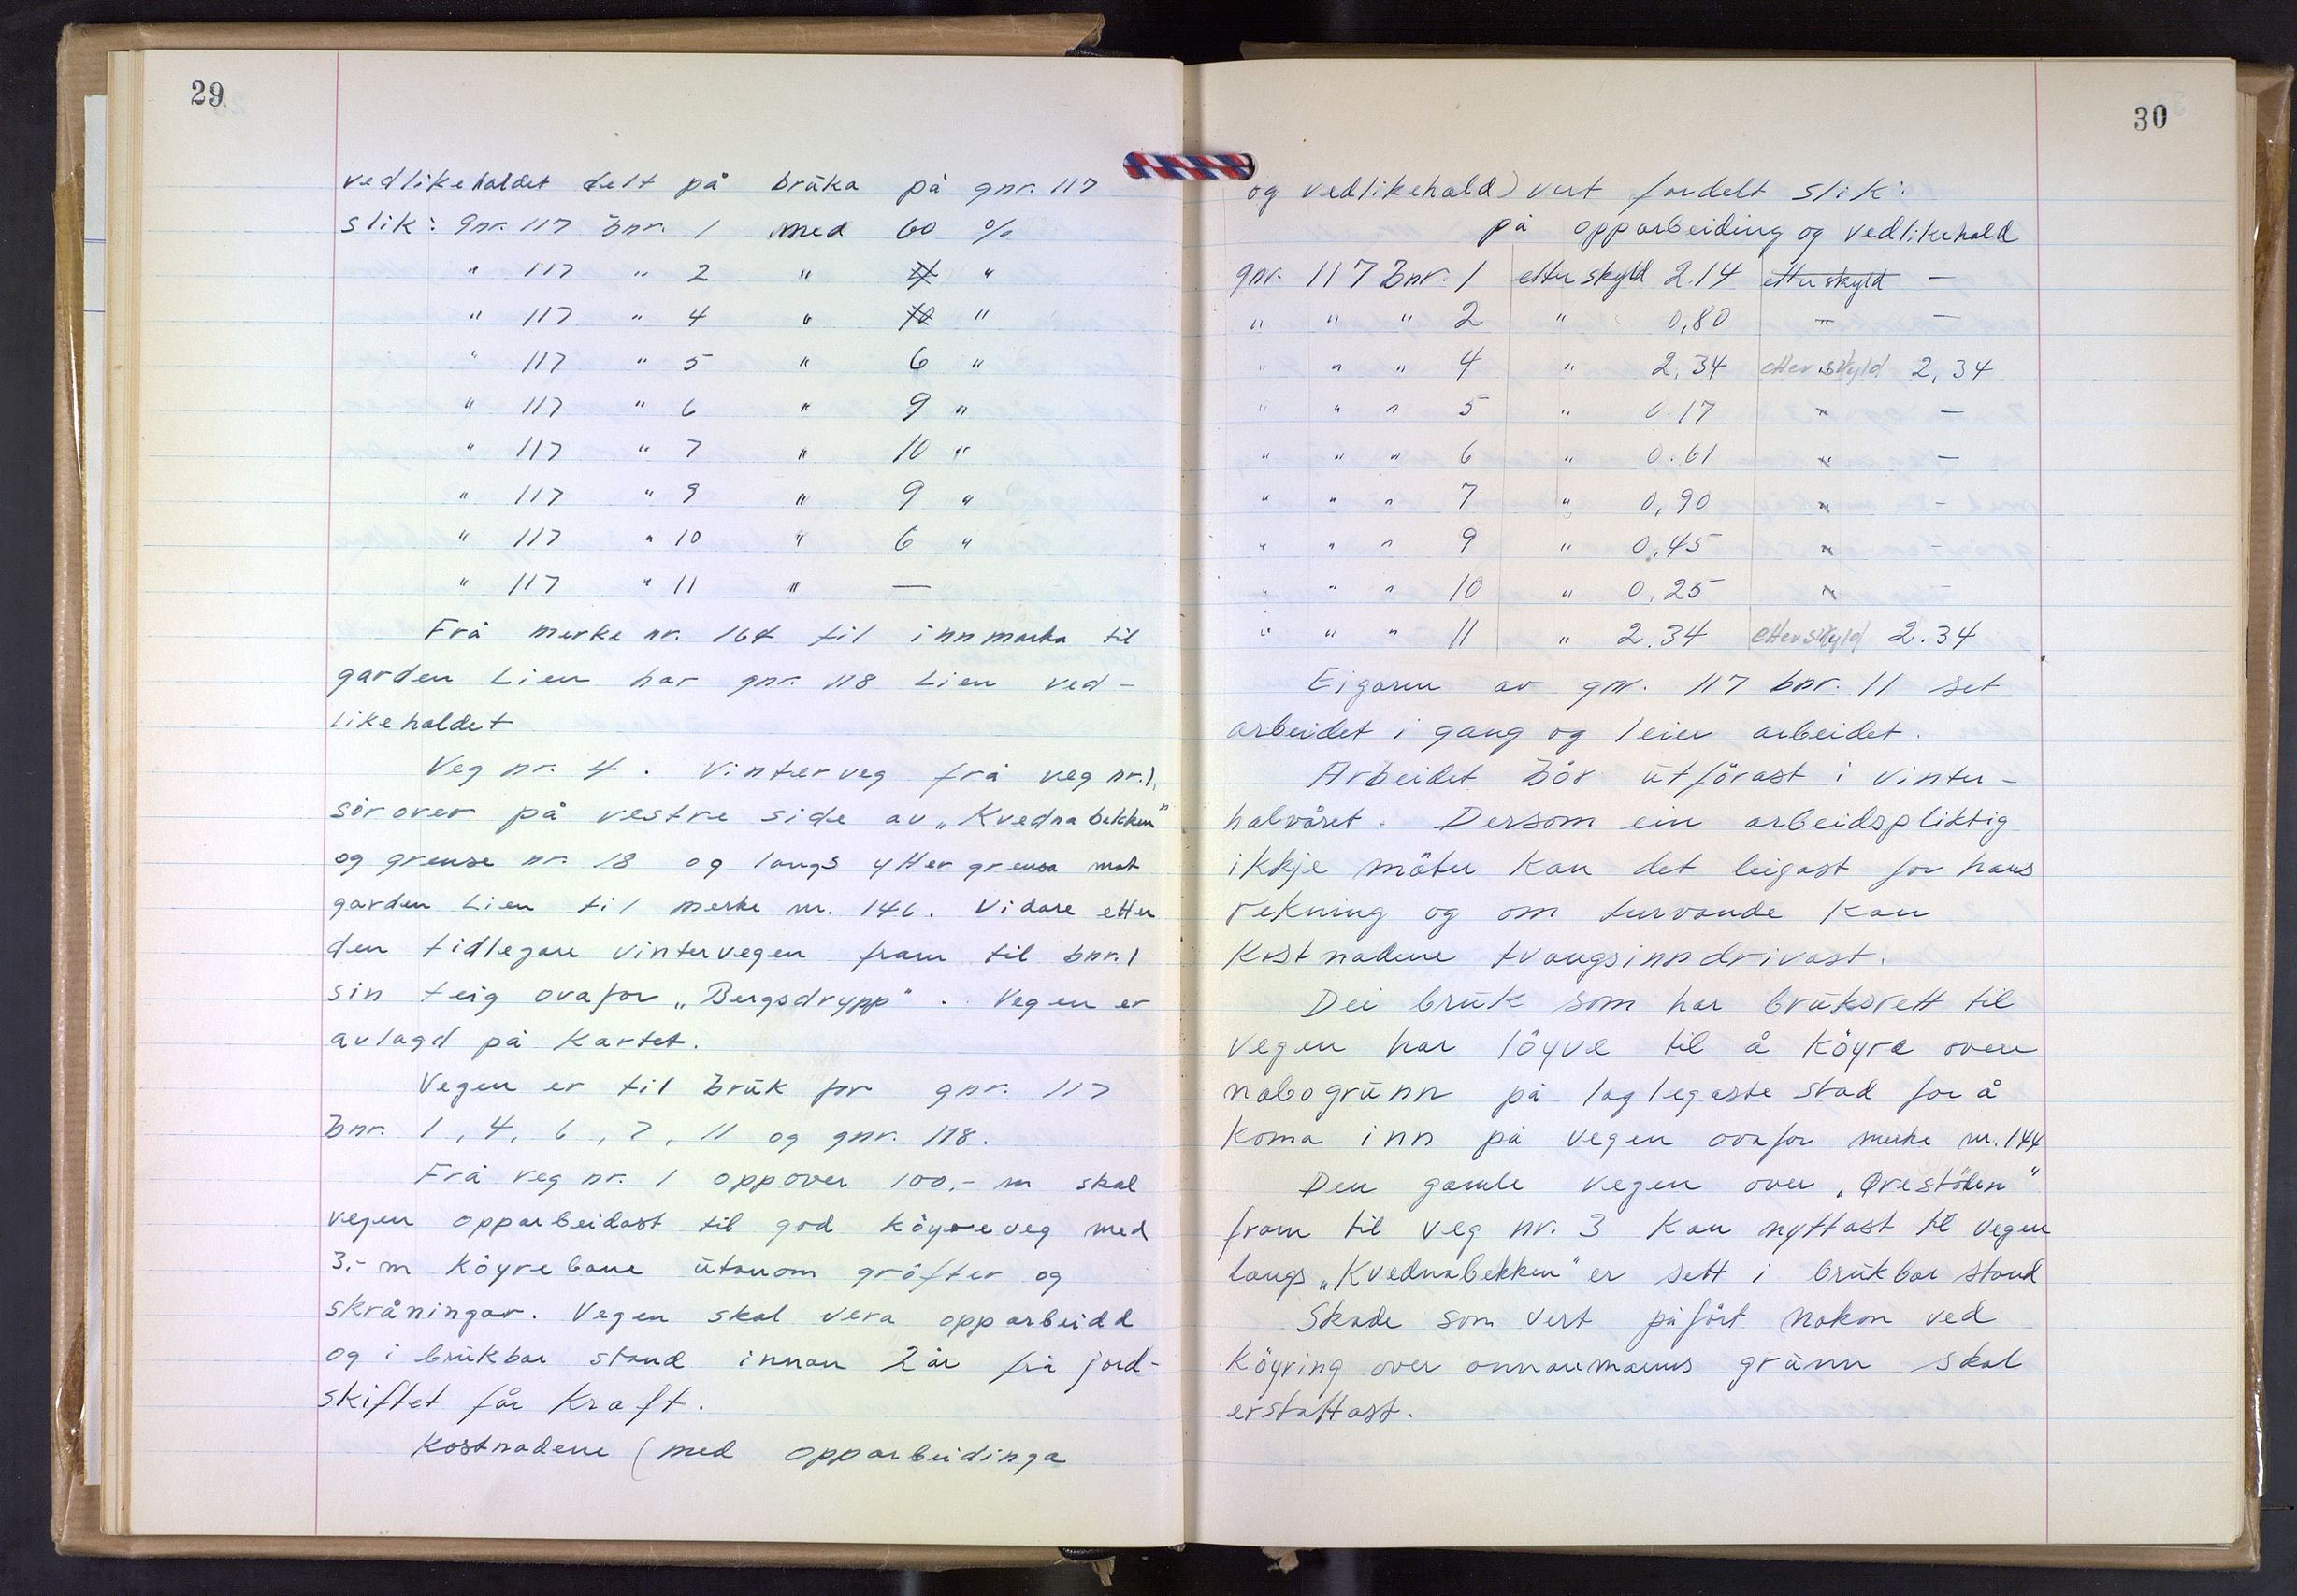 29
vedlikehaldet delt på brúka på gnr. 117
slik: gnr. 117 bnr. 1 med 60 %
" 117 " 2 " "
" 117 " 4 " 10 "
" 117 " 5 " 6 "
" 117 " 6 " 9 "
" 117 " 7 " 10 "
" 117 " 9 " 9 "
" 117 " 10 " 6 "
" 117 " 11 " —
Frå merke nr. 164 til innmarka til
garden Lien har gnr. 118 Lien ved-
likehaldet
Veg nr. 4. Vinterveg frå veg nr. 1,
sörover på vestre side av „Kvednabekken"
og grense nr. 18 og langs yttergrensa mot
garden Lien til merke nr. 146. Vidare etter
den tidlegare vintervegen fram til bnr. 1
sin teig ovafor „Bergsdrypp". Vegen er
avlagd på kartet.
Vegen er til brúk for gnr. 117
bnr. 1, 4, 6, 7, 11 og gnr. 118.
Frå veg nr. 1 oppover 100,- m skal
vegen opparbeidast til god köyreveg med
3,- m köyrebane útanom gröfter og
skråningar. Vegen skal vera opparbeidd
og i brúkbar stand innan 2 år frå jord-
skiftet får kraft.
Kostnadene (med opparbeidinga
30
og vedlikehald) vert fordelt slik:
på opparbeiding og vedlikehald
gnr. 117 bnr. 1 etter skyld 2.14 etter skyld —
" " " 2 " 0,80 " —
" " " 4 " 2,34 etter skyld 2,34
" " " 5 " 0.17 " —
" " " 6 " 0.61 " —
" " " 7 " 0,90 " —
" " " 9 " 0,45 " —
" " " 10 " 0,25 " —
" " " 11 " 2.34 etter skyld 2.34
Eigaren av gnr. 117 bnr. 11 set
arbeidet i gang og leier arbeidet.
Arbeidet bör útförast i vinter-
halvåret. Dersom ein arbeidspliktig
ikkje möter kan det leigast for hans
rekning og om turvande kan
kostnadene tvangsinndrivast.
Dei brúk som har brúksrett til
vegen har löyve til å köyre over
nabogrúnn på laglegaste stad for å
koma inn på vegen ovafor merke nr. 144
Den gamle vegen over „Örestölen"
fram til veg nr. 3 kan nyttast til vegen
langs „Kvednabekken" er sett i brúkbar stand
Skade som vert påfört nokon ved
köyring over annanmanns grúnn skal
erstattast.